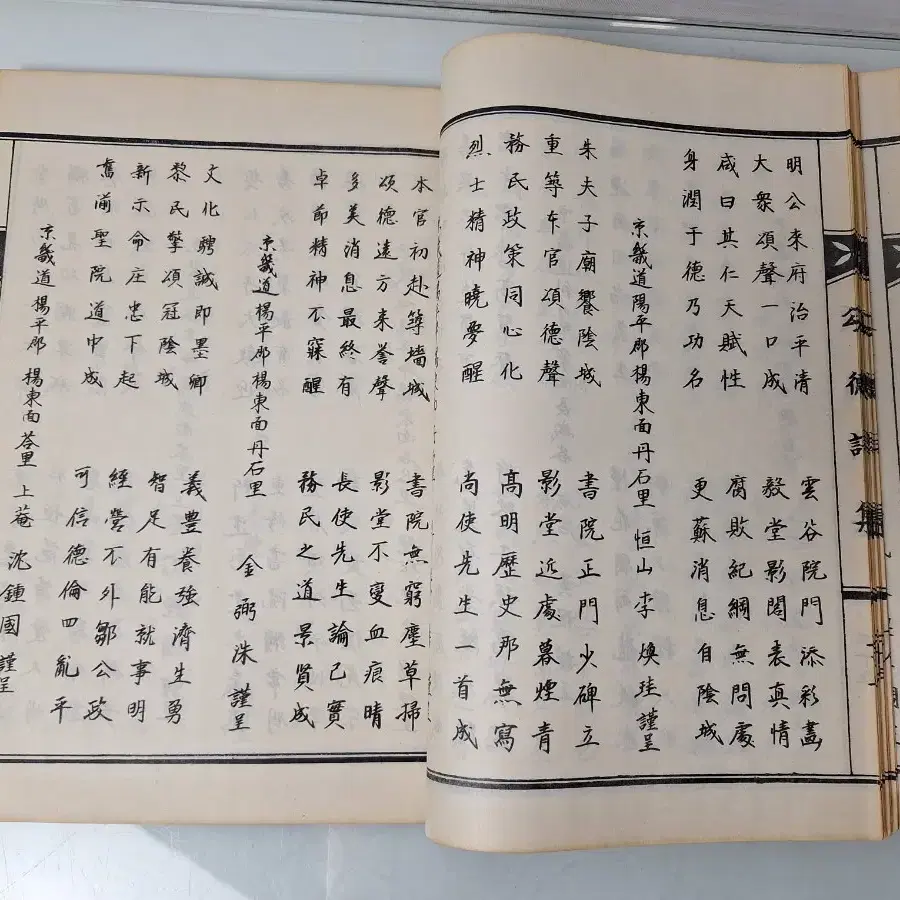 公德詩集
明公来府治平清 雲谷院門添彩畵
大衆頌聲一口成 毅堂影閣表真情
咸曰其仁天賦性 腐敗紀綱無問處
身潤于德乃功名 更蘇消息自陰城
京畿道陽平郡楊東面丹石里 恒山 李煥珪謹呈
朱夫子廟饗陰城 書院正門少碑立
重等车官頌德聲 影堂近處暮煙青
務民政策同心化 高明歷史那無寫
烈士精神曉夢醒 尚使先生一首成
本官初赴等墻城 書院無窮塵草掃
頌德遠方来誉聲 影堂不變血痕晴
多美消息最終有 長使先生論己實
卓節精神不寐醒 務民之道景賢成
京畿道楊平郡楊東面丹石里 金弼洙 謹呈
文化聘誠即墨卿 義豊養強濟生勇
黎民擎頌冠陰城 智足有能就事明
新示命庄忠下起 經營不外鄒公政
奮湧聖院道中成 可信德倫四亂平
京畿道楊平郡楊東面荅里 上菴 沈鍾國 謹呈